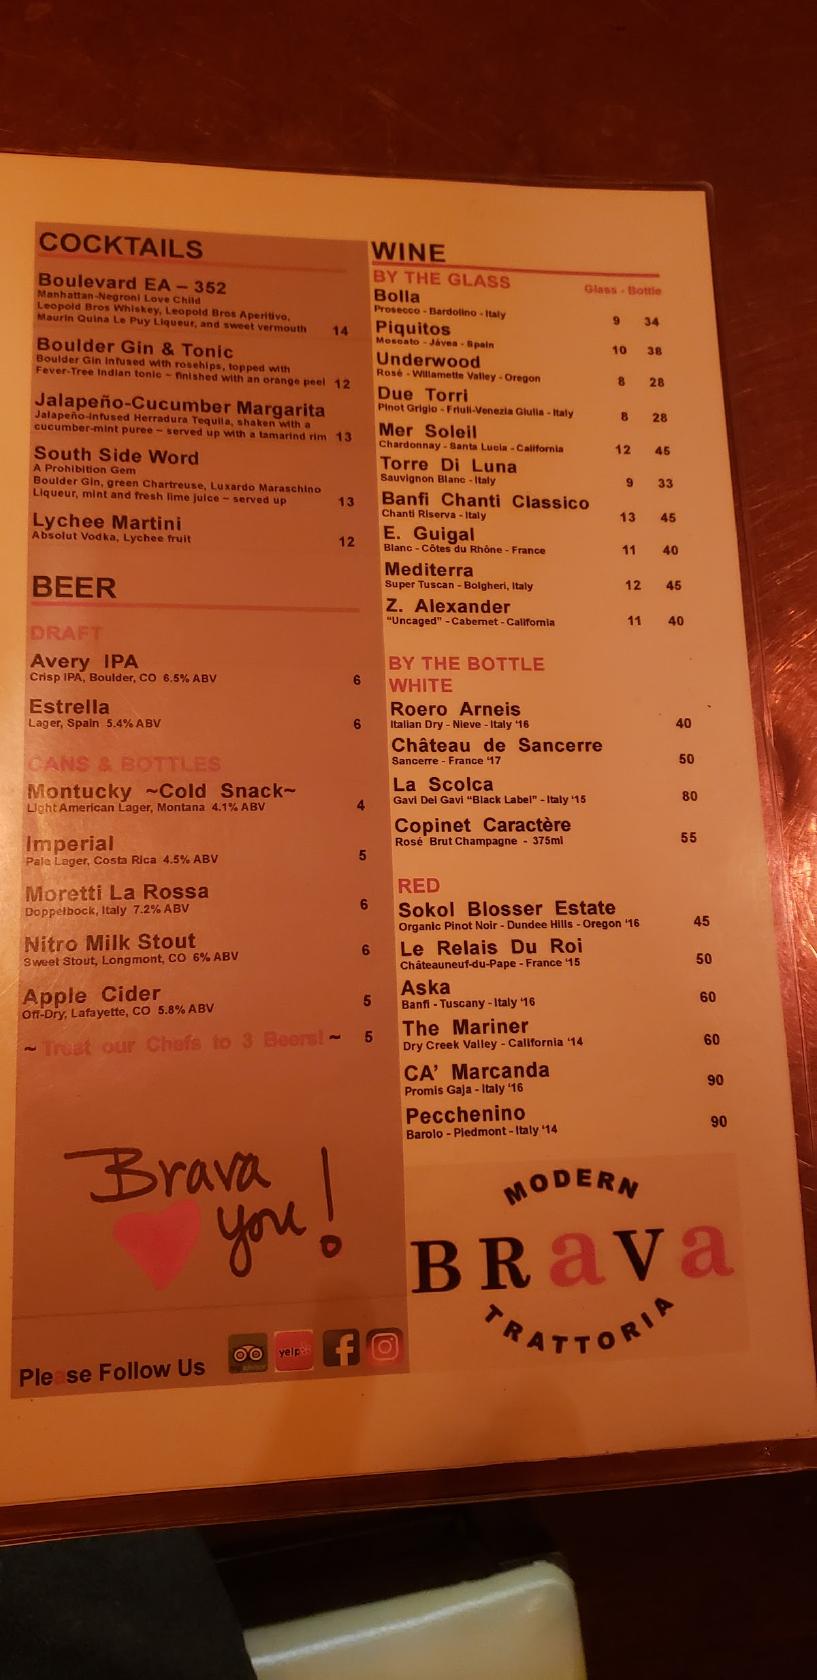 COCKTAILS
Boulevard EA – 352
Manhattan-Negroni Love Child
Leopold Bros Whiskey, Leopold Bros Aperitivo,
Maurin Quina Le Puy Liqueur, and sweet vermouth 14
Boulder Gin & Tonic
Boulder Gin infused with rosehips, topped with
Fever-Tree Indian tonic ~ finished with an orange peel 12
Jalapeño-Cucumber Margarita
Jalapeño-infused Herradura Tequila, shaken with a
cucumber-mint puree ~ served up with a tamarind rim 13
South Side Word
A Prohibition Gem
Boulder Gin, green Chartreuse, Luxardo Maraschino
Liqueur, mint and fresh lime juice ~ served up 13
Lychee Martini
Absolut Vodka, Lychee fruit 12
BEER
DRAFT
Avery IPA
Crisp IPA, Boulder, CO 6.5% ABV 6
Estrella
Lager, Spain 5.4% ABV 6
CANS & BOTTLES
Montucky ~Cold Snack~
Light American Lager, Montana 4.1% ABV 4
Imperial
Pale Lager, Costa Rica 4.5% ABV 5
Moretti La Rossa
Doppelbock, Italy 7.2% ABV 6
Nitro Milk Stout
Sweet Stout, Longmont, CO 6% ABV 6
Apple Cider
Off-Dry, Lafayette, CO 5.8% ABV 5
~ Treat our Chefs to 3 Beers! ~ 5
Brava
you!
Please Follow Us
yelp
WINE
BY THE GLASS Glass - Bottle
Bolla
Prosecco - Bardolino - Italy 9 34
Piquitos
Moscato - Jávea - Spain 10 38
Underwood
Rosé - Willamette Valley - Oregon 8 28
Due Torri
Pinot Grigio - Friuli-Venezia Giulia - Italy 8 28
Mer Soleil
Chardonnay - Santa Lucia - California 12 45
Torre Di Luna
Sauvignon Blanc - Italy 9 33
Banfi Chanti Classico
Chanti Riserva - Italy 13 45
E. Guigal
Blanc - Côtes du Rhône - France 11 40
Mediterra
Super Tuscan - Bolgheri, Italy 12 45
Z. Alexander
"Uncaged" - Cabernet - California 11 40
BY THE BOTTLE
WHITE
Roero Arneis
Italian Dry - Nieve - Italy '16 40
Château de Sancerre
Sancerre - France '17 50
La Scolca
Gavi Dei Gavi "Black Label" - Italy '15 80
Copinet Caractère
Rosé Brut Champagne - 375ml 55
RED
Sokol Blosser Estate
Organic Pinot Noir - Dundee Hills - Oregon '16 45
Le Relais Du Roi
Châteauneuf-du-Pape - France '15 50
Aska
Banfi - Tuscany - Italy '16 60
The Mariner
Dry Creek Valley - California '14 60
CA' Marcanda
Promis Gaja - Italy '16 90
Pecchenino
Barolo - Piedmont - Italy '14 90
MODERN
BRaVa
TRATTORIA